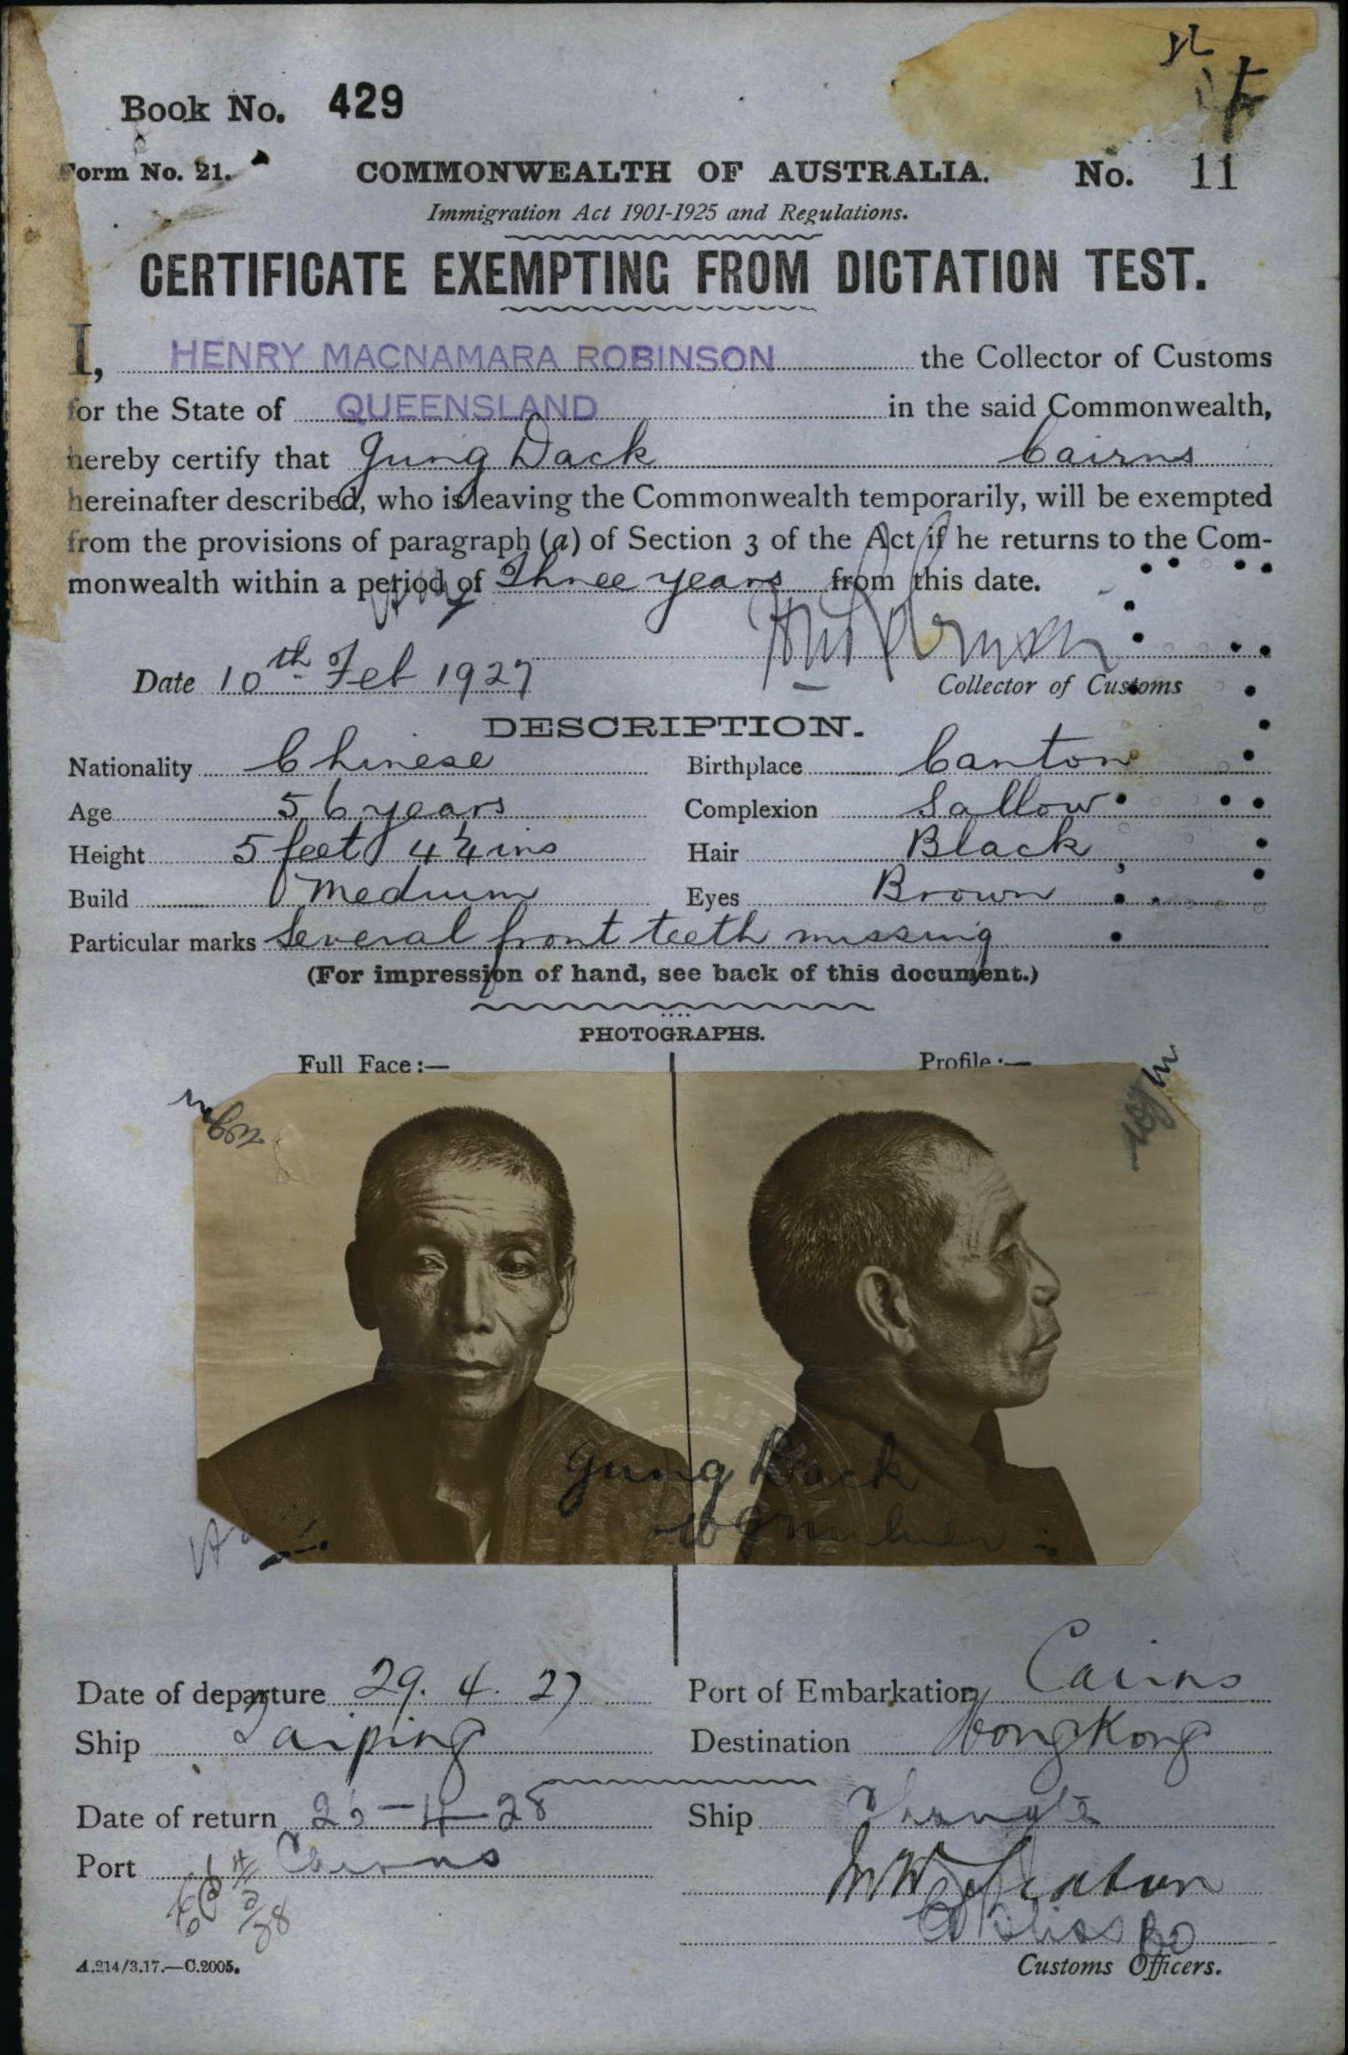 Book No. 429
Form No. 21. COMMONWEALTH OF AUSTRALIA. No. 11
Immigration Act 1901-1925 and Regulations.
CERTIFICATE EXEMPTING FROM DICTATION TEST.
I, HENRY MACNAMARA ROBINSON the Collector of Customs
for the State of QUEENSLAND in the said Commonwealth,
hereby certify that Jung Dack Cairns
hereinafter described, who is leaving the Commonwealth temporarily, will be exempted
from the provisions of paragraph (a) of Section 3 of the Act if he returns to the Com-
monwealth within a period of Three years from this date.
Date 10th Feb 1927
Collector of Customs
DESCRIPTION.
Nationality Chinese Birthplace Canton
Age 56 years Complexion Sallow
Height 5 feet 4 1/4 ins Hair Black
Build Medium Eyes Brown
Particular marks Several front teeth missing
(For impression of hand, see back of this document.)
PHOTOGRAPHS.
Full Face:— Profile:—
Jung Dack
Date of departure 29. 4. 27 Port of Embarkation Cairns
Ship Taiping Destination Hong Kong
Date of return 26-4-28 Ship Changte
Port Cairns
A.214/3.17.—C.2005.
Customs Officers.